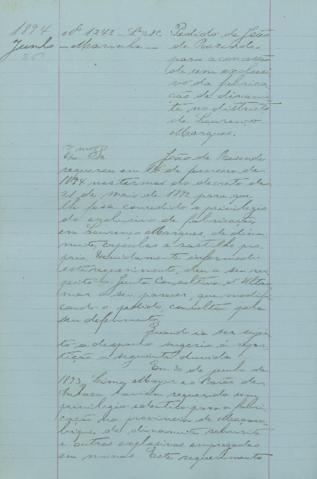 1894
Junho
26
Nº 1242 - Lº 2º C.
- Marinha -
Pedido de João
de Rezende
para a concessão
de um exclusivo
da fabrica-
ção de dinami-
te no districto
de Lourenço
Marques.
Exmo
João de Rezende
requereu em de fevereiro de
1894 nos termos do decreto de
21 de maio de 1892 para que
lhe fosse concedido o privilegio
do exclusivo de fabricação
em Lourenço Marques, de dina-
mite, capsulas e rastilho pro-
prio. Devidamente informado
este requerimento, deu a seu res-
peito a Junta Consultiva do Ultra-
mar o seu parecer, que modifi-
cando o pedido, consulta pelo
seu deferimento.
Quando ia ser sujei-
to a despacho sugeriu á repar-
tição a seguinte duvida
Em 30 de junho de
1893, Lima Mayer e Barão de
haviam requerido um
privilegio identico para a fabri-
cação na provincia de Moçam-
bique, de dinamite,
e outros explosivos empregados
em minas. Este requerimento